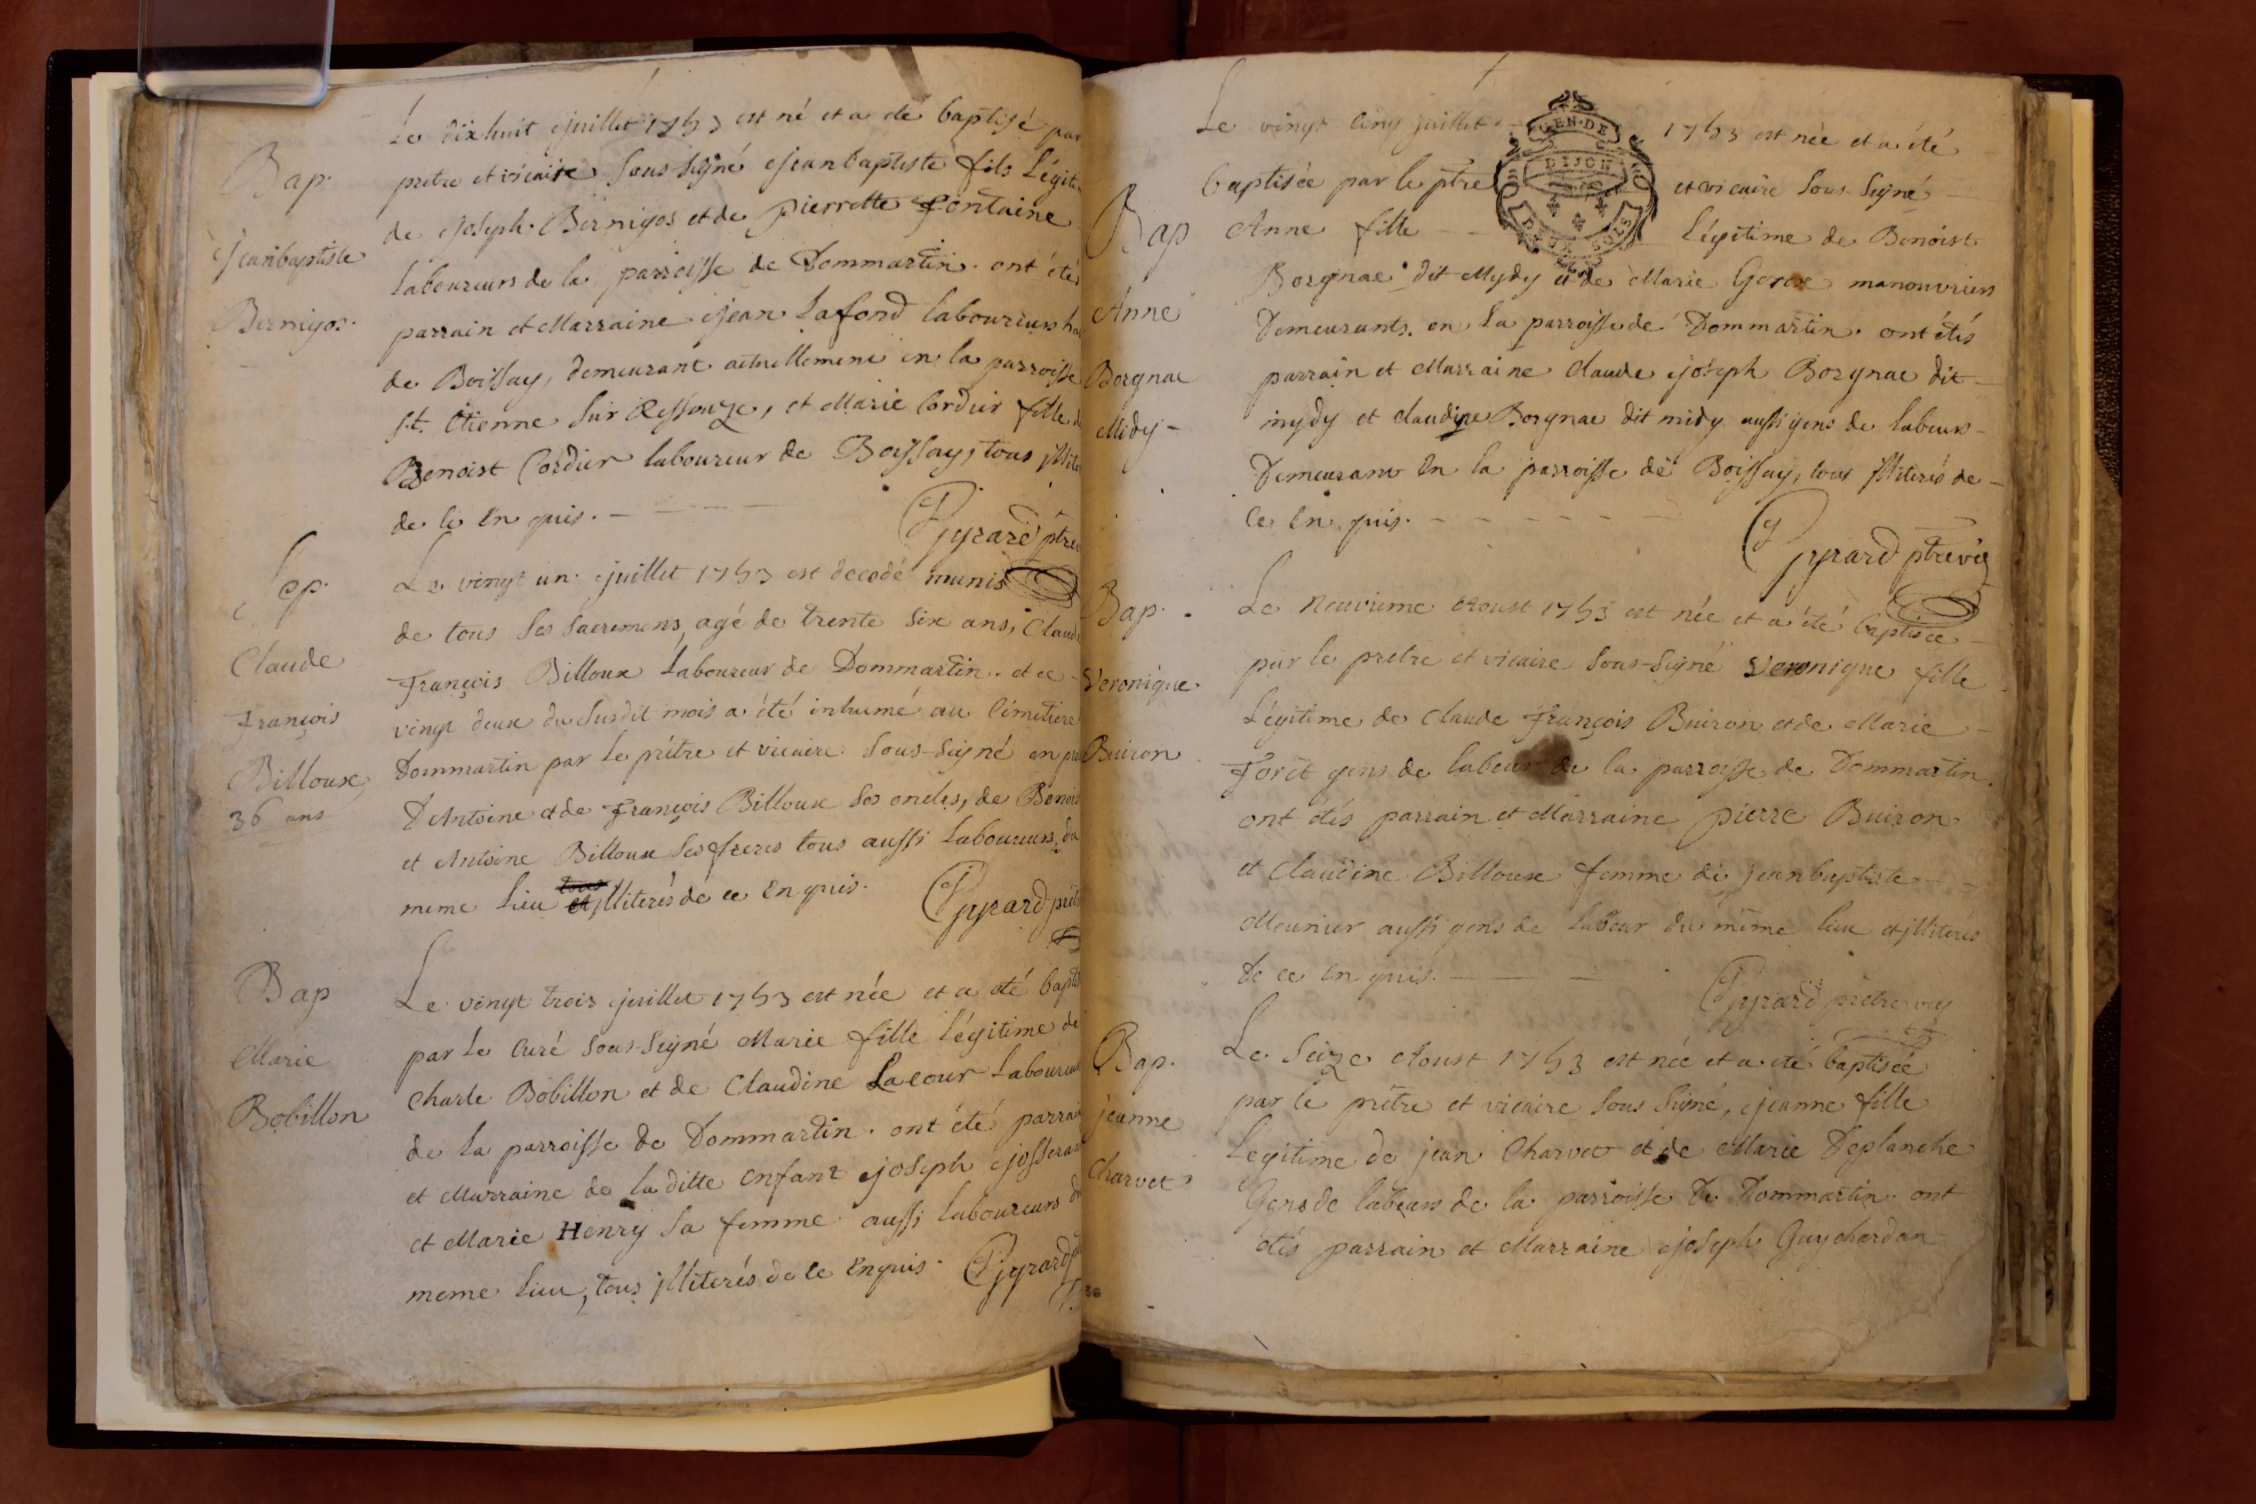 Le dix huit juillet 1753 est né et a été baptisé par
Bap.
pretre et vicaire sous signé jean baptiste fils Légit
de joseph Bernigos et de pierrette fontaine
jean baptiste
Laboureurs de la parroisse de Dommartin. ont étés
Bernigos.
parrain et Marraine jean Lafond laboureur
de Boissay, demeurant actuellement en la parroisse
st. Etienne sur Ressouze, et Marie Cordier fille d
Benoist Cordier laboureur de Boissay, tous jlliter
de ce Enquis.
Gyrard ptre
Sep.
Le vingt un juillet 1753 est decedé munis
de tous ses sacremens, agé de trente six ans, Claud
Claude
françois Billoux Laboureur de Dommartin. et ce
françois
vingt deux du susdit mois a été inhumé au Cimetiere
Billoux
Dommartin par le prétre et vicaire sous-signé en pre
36 ans
D'Antoine et de françois Billoux ses oncles, de Benois
et Antoine Billoux ses freres tous aussi Laboureurs du
tous
meme Lieu et jlliterés de ce Enquis.
Gyrard pret
Bap
Le vingt trois juillet 1753 est née et a été bapti
par Le Curé sous-signé Marie fille Légitime de
Marie
Charle Bobillon et de Claudine Lacour Laboureur
Bobillon
de La parroisse de Dommartin. ont été parrai
et Marraine de la ditte enfant joseph josseran
et Marie Henry sa femme aussi laboureurs d
meme Lieu, tous jlliterés de ce Enquis.
Gyrard
Le vingt Cinq juillet 1753 est née et a été
GEN. DE
DIJON
DEUX SOLS
baptisée par le ptre et vicaire sous signé
Bap
Anne fille Légitime de Benoist
Borgnae dit Mydy et de Marie manouvriers
Anne
Demeurants en la parroisse de Dommartin. ont étés
Borgnae
parrain et Marraine Claude joseph Borgnae dit
Midy
mydy et claudine Borgnae dit midy aussi gens de labeur
Demeurans En la parroisse de Boissay, tous jlliterés de
ce Enquis.
Gyrard ptre vic
Bap.
Le neuvieme Aoust 1753 est née et a été baptisée
par le pretre et vicaire sous-signé veronique fille
Veronique
Légitime de Claude françois Buiron et de Marie
Buiron
forêt gens de labeur de la parroisse de Dommartin.
ont étés parrain et Marraine pierre Buiron
et Claudine Billoux femme de jean baptiste
Meunier aussi gens de labeur du même lieu et jlliterés
De ce Enquis.
Gyrard pretre vic
Bap.
Le Seize Aoust 1753 est née et a été baptisée
par le prétre et vicaire sous signé, jeanne fille
jeanne
Legitime de jean Charvet et de Marie Deplanche
Charvet
Gens de labeur de la parroisse De Dommartin. ont
étés parrain et Marraine joseph Guychardan